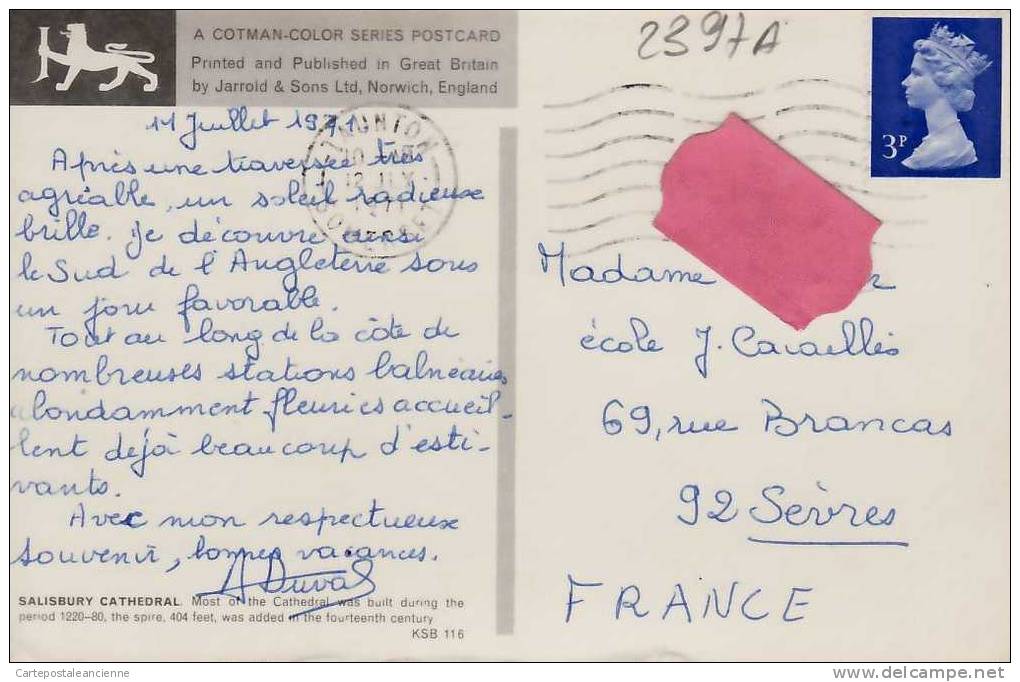 A COTMAN-COLOR SERIES POSTCARD
Printed and Published in Great Britain
by Jarrold & Sons Ltd, Norwich, England
2397A
3P
TAUNTON
1971
SOMERSET
11 Juillet 1971
Après une traversée très
agréable, un soleil radieuse
brille. Je découvre ainsi
le Sud de l'Angleterre sous
un jour favorable.
Tout au long de la côte de
nombreuses stations balnéaires
abondamment fleuries accueil-
lent déjà beaucoup d'esti-
vants.
Avec mon respectueux
souvenir, bonnes vacances.
ADuval
SALISBURY CATHEDRAL. Most of the Cathedral was built during the
period 1220–80, the spire, 404 feet, was added in the fourteenth century
KSB 116
Madame
école J. Cavaillès
69, rue Brancas
92 Sèvres
FRANCE
Cartepostaleancienne
delcampe.net